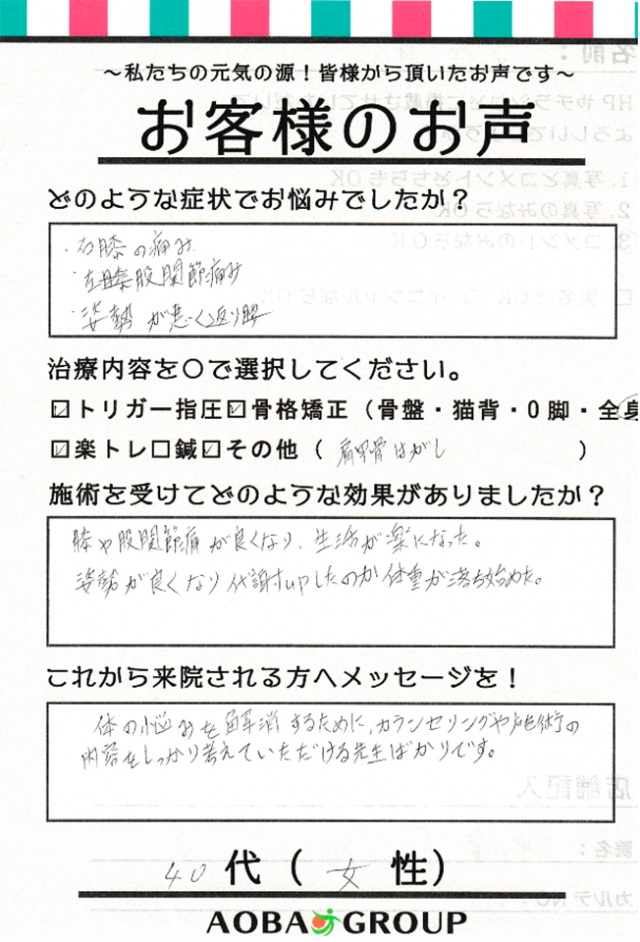 ～私たちの元気の源！皆様から頂いたお声です～
お客様のお声
どのような症状でお悩みでしたか？
・右膝の痛み
・左膝股関節痛み
・姿勢が悪く反り腰
治療内容を〇で選択してください。
☑トリガー指圧☑骨格矯正（骨盤・猫背・O脚・全身
☑楽トレ□鍼☑その他（ 肩甲骨はがし ）
施術を受けてどのような効果がありましたか？
膝や股関節痛が良くなり、生活が楽になった。
姿勢が良くなり代謝もupしたのか体重が落ち始めた。
これから来院される方へメッセージを！
体の悩みを解消するために、カウンセリングや施術の
内容をしっかり考えていただける先生ばかりです。
40代（女性）
AOBA GROUP